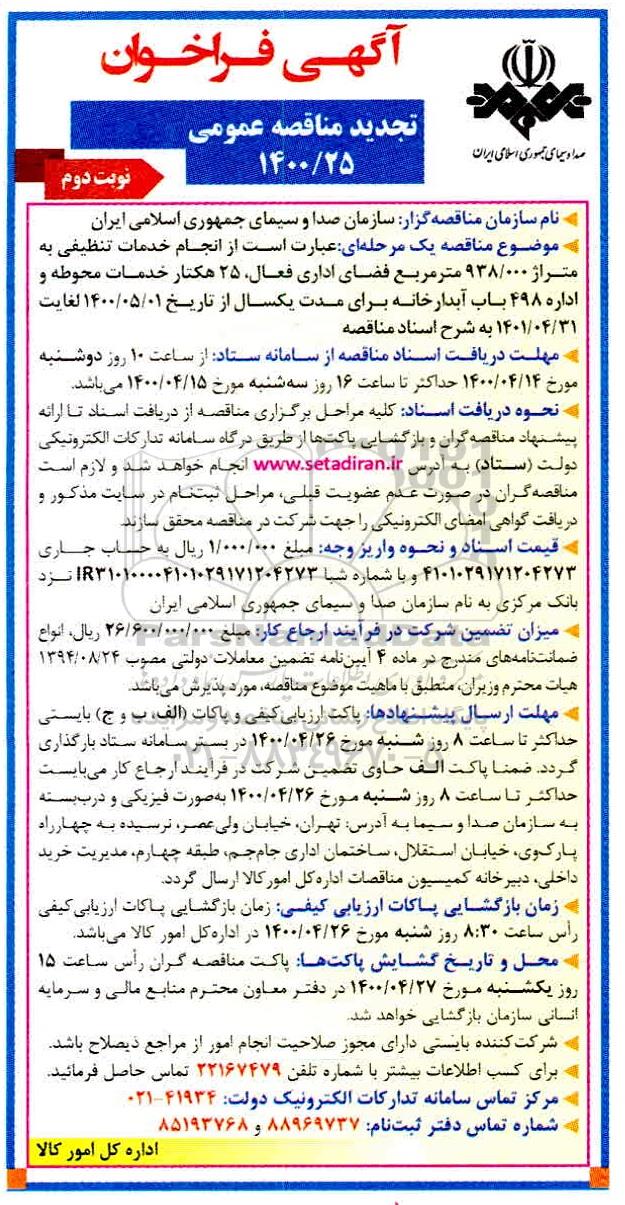 آگهی فراخوان
صدا و سیمای جمهوری اسلامی ایران
تجدید مناقصه عمومی
۱۴۰۰/۲۵
نوبت دوم
نام سازمان مناقصه‌گزار: سازمان صدا و سیمای جمهوری اسلامی ایران
موضوع مناقصه یک مرحله‌ای:عبارت است از انجام خدمات تنظیفی به
متراژ ۹۳۸/۰۰۰ مترمربع فضای اداری فعال، ۲۵ هکتار خدمات محوطه و
اداره ۴۹۸ باب آبدارخانه برای مدت یکسال از تاریخ ۱۴۰۰/۰۵/۰۱ لغایت
۱۴۰۱/۰۴/۳۱ به شرح اسناد مناقصه
مهلت دریافت اسناد مناقصه از سامانه ستاد: از ساعت ۱۰ روز دوشنبه
مورخ ۱۴۰۰/۰۴/۱۴ حداکثر تا ساعت ۱۶ روز سه‌شنبه مورخ ۱۴۰۰/۰۴/۱۵ می‌باشد.
نحوه دریافت اسناد: کلیه مراحل برگزاری مناقصه از دریافت اسناد تا ارائه
پیشنهاد مناقصه‌گران و بازگشایی پاکت‌ها از طریق درگاه سامانه تدارکات الکترونیکی
دولت (ستاد) به آدرس www.setadiran.ir انجام خواهد شد و لازم است
مناقصه‌گران در صورت عدم عضویت قبلی، مراحل ثبت‌نام در سایت مذکور و
دریافت گواهی امضای الکترونیکی را جهت شرکت در مناقصه محقق سازند.
قیمت اسناد و نحوه واریز وجه: مبلغ ۱/۰۰۰/۰۰۰ ریال به حساب جاری
۴۱۰۱۰۲۹۱۷۱۲۰۴۲۷۳ و با شماره شبا IR۳۱۰۱۰۰۰۰۴۱۰۱۰۲۹۱۷۱۲۰۴۲۷۳ نزد
بانک مرکزی به نام سازمان صدا و سیمای جمهوری اسلامی ایران
میزان تضمین شرکت در فرآیند ارجاع کار: مبلغ ۲۶/۶۰۰/۰۰۰/۰۰۰ ریال، انواع
ضمانتنامه‌های مندرج در ماده ۴ آیین‌نامه تضمین معاملات دولتی مصوب ۱۳۹۴/۰۸/۲۴
هیات محترم وزیران، منطبق با ماهیت موضوع مناقصه، مورد پذیرش می‌باشد.
مهلت ارسال پیشنهادها: پاکت ارزیابی کیفی و پاکات (الف، ب و ج) بایستی
حداکثر تا ساعت ۸ روز شنبه مورخ ۱۴۰۰/۰۴/۲۶ در بستر سامانه ستاد بارگذاری
گردد. ضمنا پاکت الف حاوی تضمین شرکت در فرآیند ارجاع کار می‌بایست
حداکثر تا ساعت ۸ روز شنبه مورخ ۱۴۰۰/۰۴/۲۶ به‌صورت فیزیکی و درب‌بسته
به سازمان صدا و سیما به آدرس: تهران، خیابان ولی‌عصر، نرسیده به چهارراه
پارک‌وی، خیابان استقلال، ساختمان اداری جام‌جم، طبقه چهارم، مدیریت خرید
داخلی، دبیرخانه کمیسیون مناقصات اداره‌کل امور کالا ارسال گردد.
زمان بازگشایی پاکات ارزیابی کیفی: زمان بازگشایی پاکات ارزیابی کیفی
رأس ساعت ۸:۳۰ روز شنبه مورخ ۱۴۰۰/۰۴/۲۶ در اداره‌کل امور کالا می‌باشد.
محل و تاریخ گشایش پاکت‌ها: پاکت مناقصه گران رأس ساعت ۱۵
روز یکشنبه مورخ ۱۴۰۰/۰۴/۲۷ در دفتر معاون محترم منابع مالی و سرمایه
انسانی سازمان بازگشایی خواهد شد.
شرکت‌کننده بایستی دارای مجوز صلاحیت انجام امور از مراجع ذیصلاح باشد.
برای کسب اطلاعات بیشتر با شماره تلفن ۲۲۱۶۷۴۷۹ تماس حاصل فرمائید.
مرکز تماس سامانه تدارکات الکترونیک دولت: ۴۱۹۳۴-۰۲۱
شماره تماس دفتر ثبت‌نام: ۸۸۹۶۹۷۳۷ و ۸۵۱۹۳۷۶۸
اداره کل امور کالا